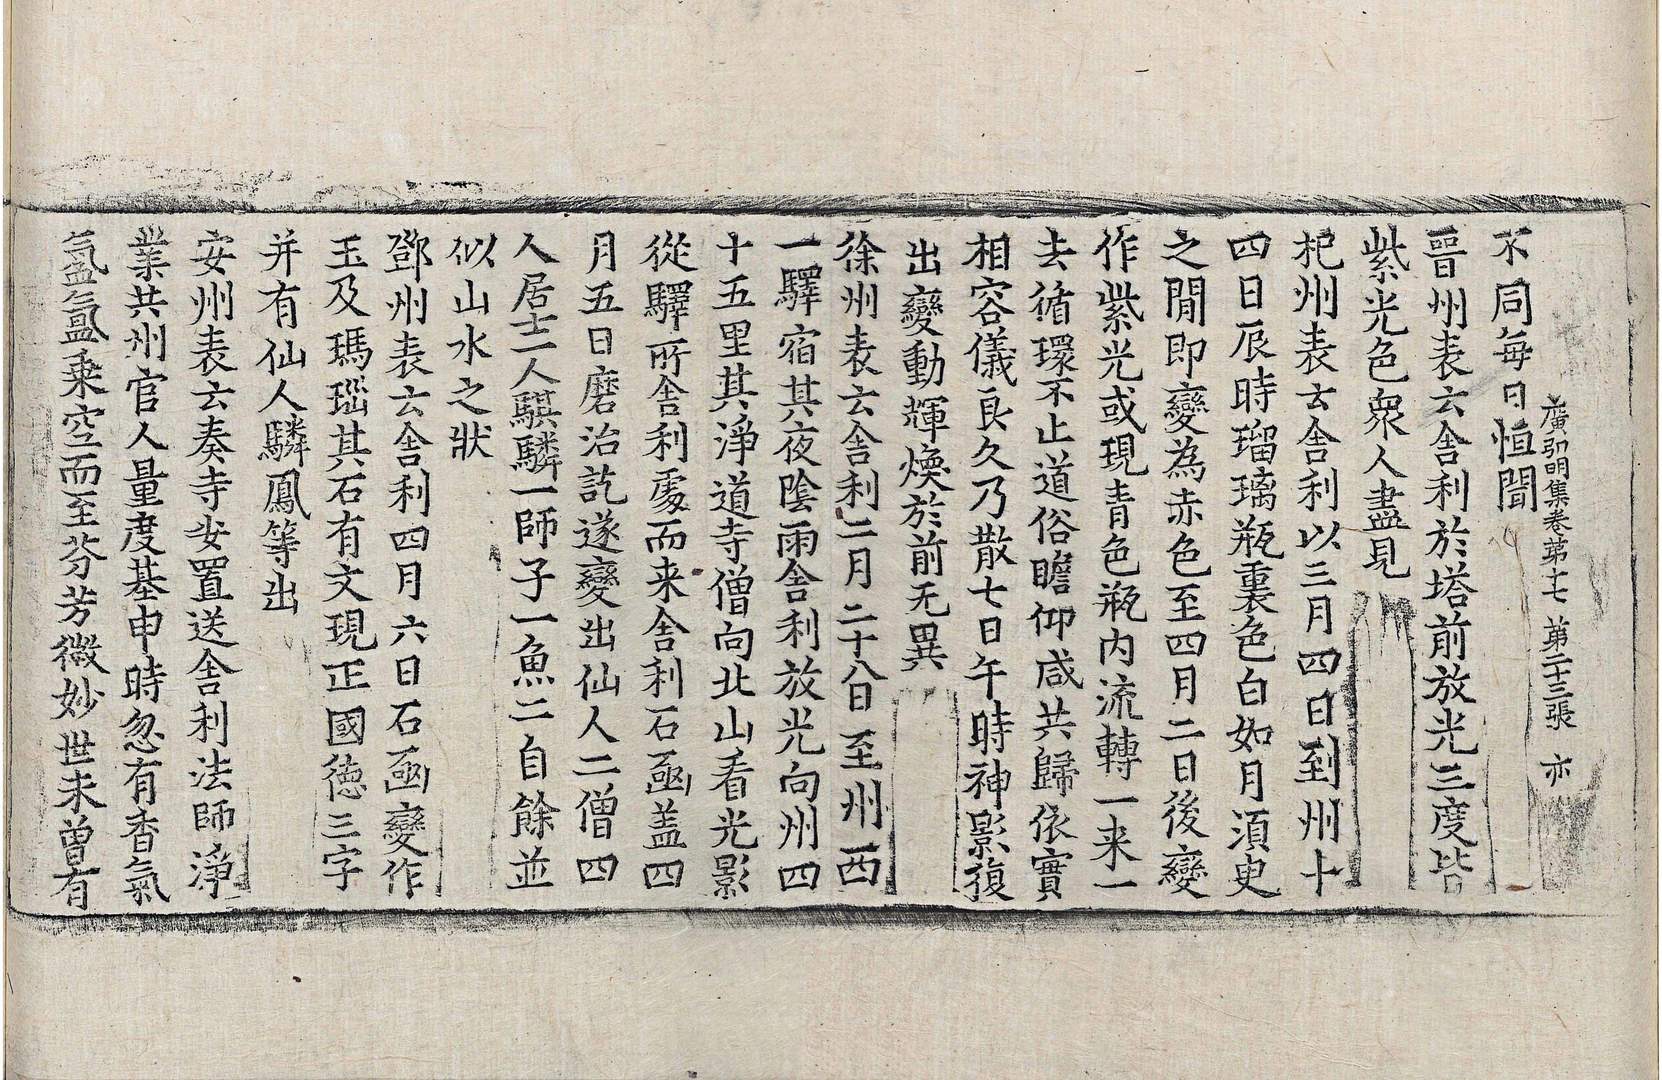 廣弘明集卷苐十七 苐二十三張 亦
不同每日恒聞
晉州表云舍利於塔前放光三度皆
紫光色衆人盡見
杞州表云舍利以三月四日到州十
四日辰時瑠璃瓶裏色白如月湏臾
之閒即變為赤色至四月二日後變
作紫光或現青色瓶內流轉一来一
去循環不止道俗瞻仰咸共歸依實
相容儀良久乃散七日午時神影復
出變動輝煥於前无異
徐州表云舍利二月二十八日至州西
一驛宿其夜陰雨舍利放光向州四
十五里其淨道寺僧向北山看光影
從驛所舍利處而来舍利石函盖四
月五日磨治訖遂變出仙人二僧四
人居士一人騏驎一師子一魚二自餘並
似山水之狀
鄧州表云舍利四月六日石函變作
玉及瑪瑙其石有文現正國德三字
并有仙人驎鳳等出
安州表云奏寺安置送舍利法師淨
業共州官人量度基申時忽有香氣
氳氳乗空而至芬芳微妙世未曾有